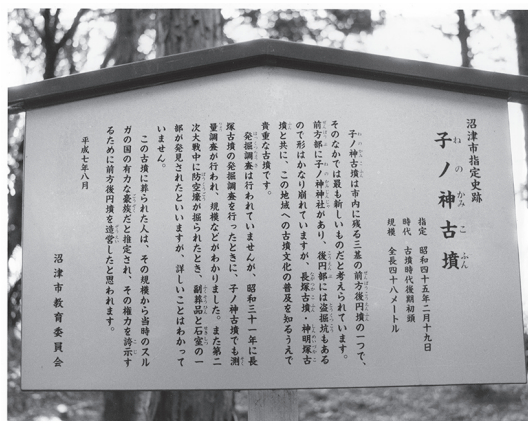 沼津市指定史跡
子ノ神古墳
ねのかみこふん
指定　昭和四十五年二月十九日
時代　古墳時代後期初頭
規模　全長四十八メートル
子ノ神古墳は市内に残る三基の前方後円墳の一つで、
そのなかでは最も新しいものだと考えられています。
前方部に子ノ神神社があり、後円部には盗掘坑もある
ので形はかなり崩れていますが、長塚古墳・神明塚古
墳と共に、この地域への古墳文化の普及を知るうえで
貴重な古墳です。
発掘調査は行われていませんが、昭和三十一年に長
塚古墳の発掘調査を行ったときに、子ノ神古墳でも測
量調査が行われ、規模などがわかりました。また第二
次大戦中に防空壕が掘られたとき、副葬品と石室の一
部が発見されたといいますが、詳しいことはわかって
いません。
この古墳に葬られた人は、その規模から当時のスル
ガの国の有力な豪族だと推定され、その権力を誇示す
るために前方後円墳を造営したと思われます。
平成七年八月
沼津市教育委員会